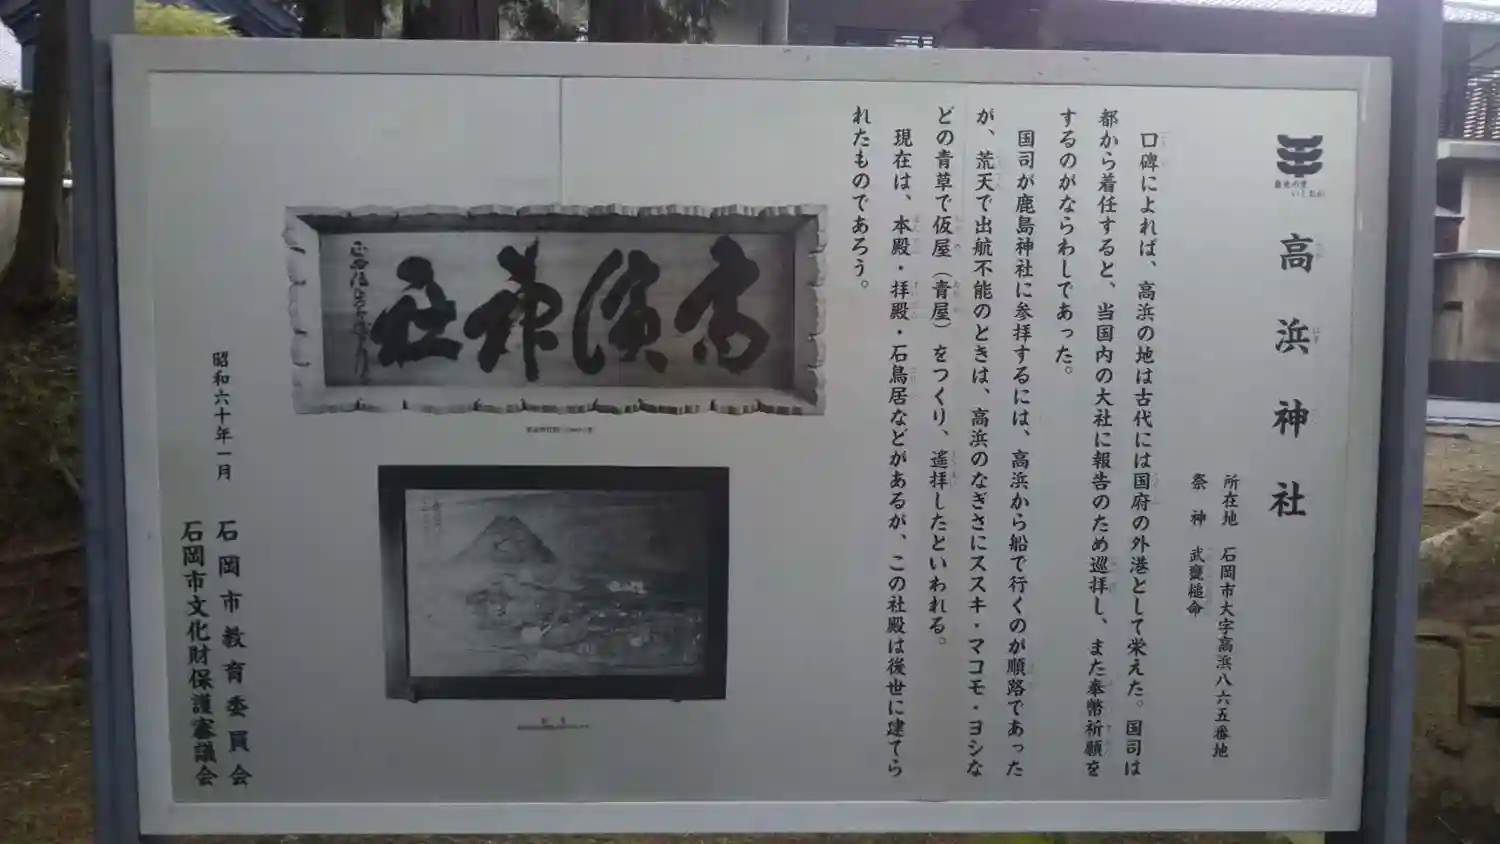 高浜神社
所在地 石岡市大字高浜八六五番地
祭神 武甕槌命
口碑によれば、高浜の地は古代には国府の外港として栄えた。国司は
都から着任すると、当国内の大社に報告のため巡拝し、また奉幣祈願を
するのがならわしであった。
国司が鹿島神社に参拝するには、高浜から船で行くのが順路であった
が、荒天で出航不能のときは、高浜のなぎさにススキ・マコモ・ヨシな
どの青草で仮屋（青屋）をつくり、遙拝したといわれる。
現在は、本殿・拝殿・石鳥居などがあるが、この社殿は後世に建てら
れたものであろう。
高濱神社
昭和六十年一月
石岡市教育委員会
石岡市文化財保護審議会